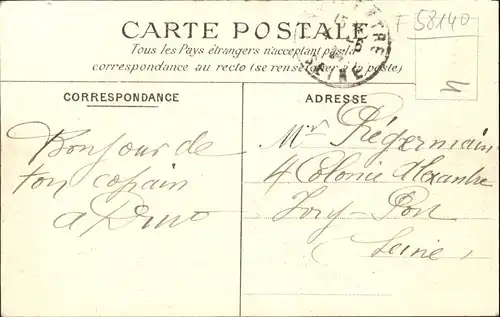 CARTE POSTALE
F 58140
Tous les Pays étrangers n'acceptent pas la
correspondance au recto (se renseigner à la poste)
SEINE
CORRESPONDANCE
ADRESSE
Bonjour de
ton copain
Mr Prégermain
4 Colonie Alexandre
Ivry-Port
Seine